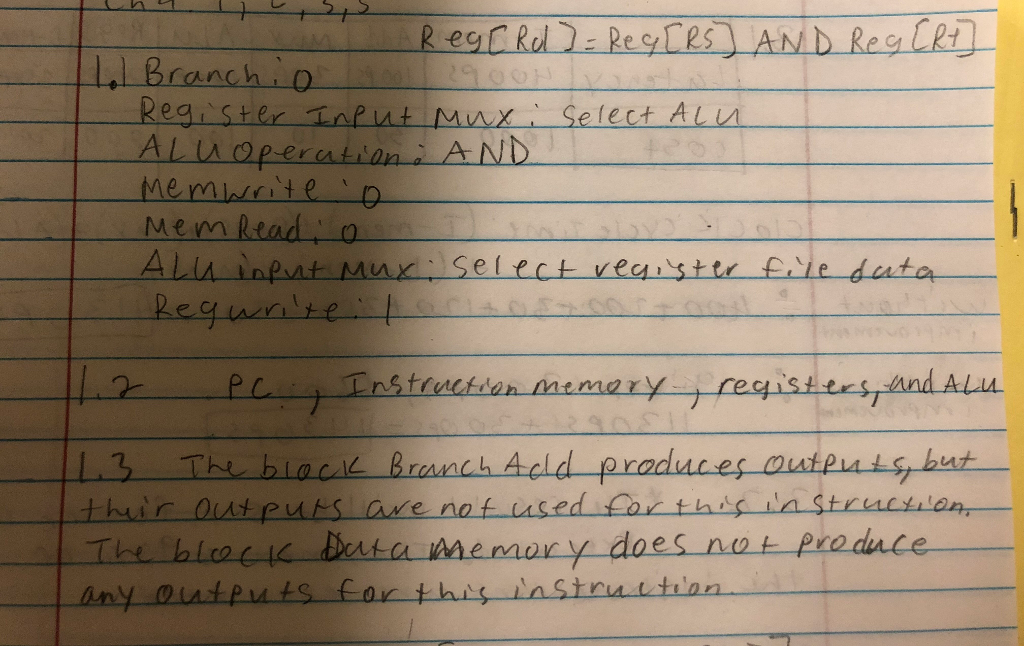 Reg[Rd] = Reg[Rs] AND Reg[Rt]
1.1 Branch: 0
Register Input Mux: Select ALU
ALU Operation: AND
Memwrite: 0
Mem Read: 0
ALU input Mux: Select register file data
Regwrite: 1
1.2 PC, Instruction memory, registers, and ALU
1.3 The block Branch Add produces outputs, but
their outputs are not used for this instruction.
The block Data Memory does not produce
any outputs for this instruction.